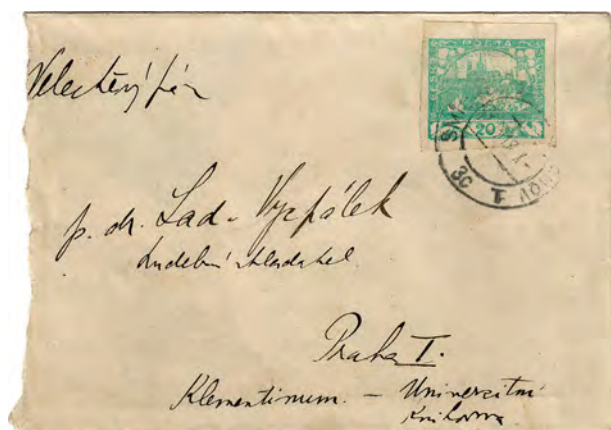 POŠTA
20
Velectěný pán
p. dr. Lad. Vycpálek
hudební skladatel.
Praha I.
Klementinum. – Universitní
Knihovna